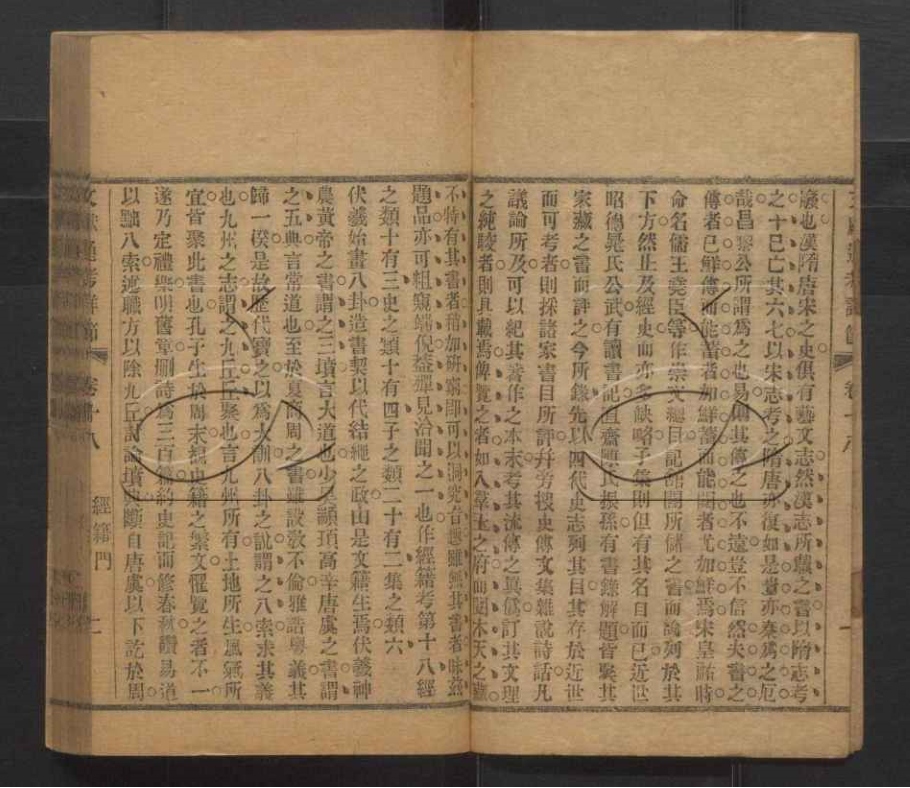 廢也漢隋唐宋之史俱有藝文志然漢志所載之書以隋志考
之十已亡其六七以宋志考之隋唐亦復如是豈亦秦為之厄
哉昌黎公所謂為之也易則其傳之也不遠豈不信然夫書之
傳者已鮮傳而能蓄者加鮮蓄而能閱者尤加鮮焉宋皇祐時
命名儒王堯臣等作崇文總目記館閣所儲之書而論列於其
下方然止及經史而亦多缺略子集則但有其名目而已近世
昭德晁氏公武有讀書記直齋陳氏振孫有書錄解題皆聚其
家藏之書而評之今所錄先以四代史志列其目其存於近世
而可考者則採諸家書目所評并旁搜史傳文集雜說詩話凡
議論所及可以紀其著作之本末考其流傳之真偽訂其文理
之純駁者則具載焉俾覽之者如入羣玉之府而閱木天之藏
不特有其書者稍加研窮即可以洞究旨趣雖無其書者味茲
題品亦可粗窺端倪蓋殫見洽聞之一也作經籍考第十八經
之類十有三史之類十有四子之類二十有二集之類六
伏羲始畫八卦造書契以代結繩之政由是文籍生焉伏羲神
農黃帝之書謂之三墳言大道也少昊顓頊高辛唐虞之書謂
之五典言常道也至於夏商周之書雖設教不倫雅誥奧義其
歸一揆是故歷代寶之以為大訓八卦之說謂之八索求其義
也九州之志謂之九丘丘聚也言九州所有土地所生風氣所
宜皆聚此書也孔子生於周末覩史籍之繁文懼覽之者不一
遂乃定禮樂明舊章刪詩為三百篇約史記而修春秋讚易道
以黜八索述職方以除九丘討論墳典斷自唐虞以下訖於周
文獻通考詳節 卷十八 經籍門 二